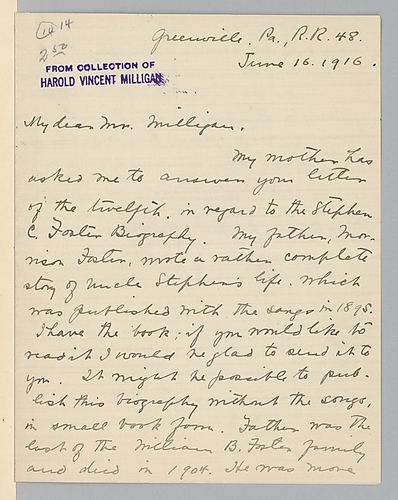 14 14
2 50
FROM COLLECTION OF
HAROLD VINCENT MILLIGAN
Greenville, Pa., R.R. 48.
June 16. 1916.
My dear Mr. Milligan,
My mother has
asked me to answer your letter
of the twelfth, in regard to the Stephen
C. Foster Biography. My father, Mor-
rison Foster, wrote a rather complete
story of Uncle Stephen's life. which
was published with the songs in 1895.
I have the book; if you would like to
read it I would be glad to send it to
you. It might be possible to pub-
lish this biography without the songs,
in small book form. Father was the
last of the William B. Foster family
and died in 1904. He was more